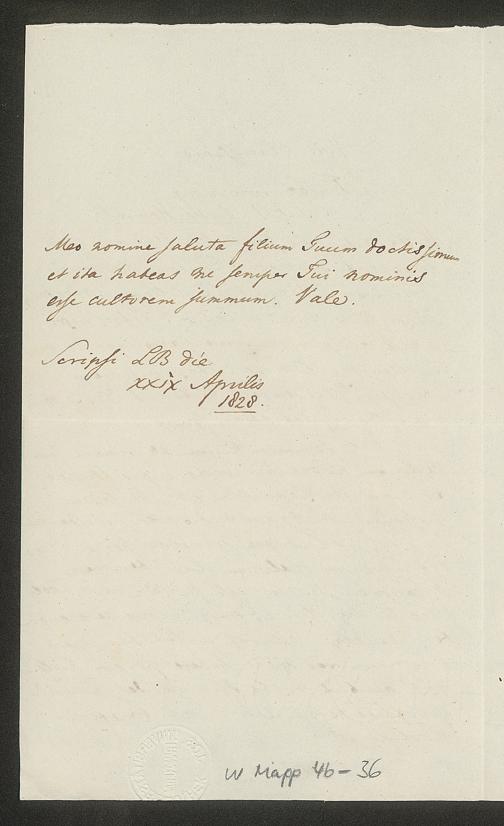 Meo nomine saluta filium Tuum doctissimum
et ita habeas me semper Tui nominis
esse cultorem summum. Vale.
Scripsi LB die
XXIX Aprilis
1828.
W Mapp 46-36